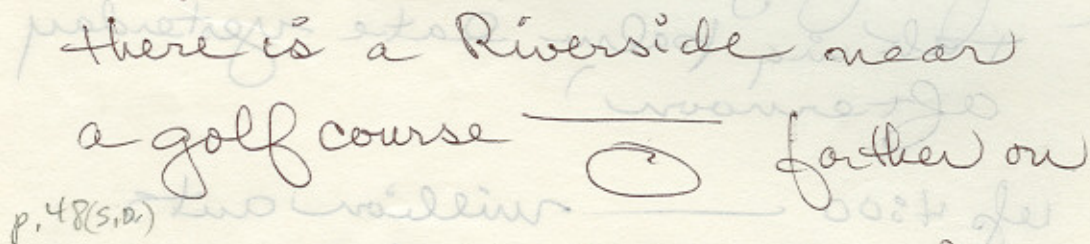 there is a Riverside near
a golf course — farther on
p. 48 (S.D.)